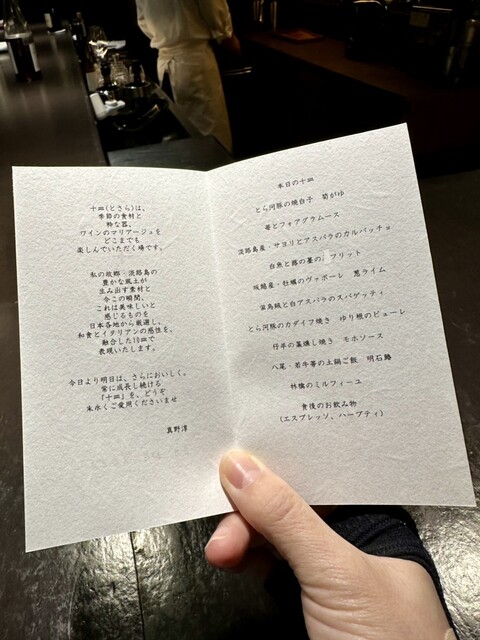 十皿(とさら)は、
季節の食材と
粋な器、
ワインのマリアージュを
どこまでも
楽しんでいただく場です。
私の故郷・淡路島の
豊かな風土が
生み出す素材と
今この瞬間、
これは美味しいと
感じるものを
日本各地から厳選し、
和食とイタリアンの感性を、
融合した10皿で
表現いたします。
今日より明日は、さらにおいしく。
常に成長し続ける
『十皿』を、どうぞ
末永くご愛用くださいませ
真野淳
本日の十皿
とら河豚の焼白子 筍がゆ
苺とフォアグラムース
淡路島産・サヨリとアスパラのカルパッチョ
白魚と蕗の薹のフリット
坂越産・牡蠣のヴァポーレ 葱ライム
蛍烏賊と白アスパラのスパゲッティ
とら河豚のカダイフ焼き ゆり根のピューレ
仔羊の藁燻し焼き モホソース
八尾・若牛蒡の土鍋ご飯 明石鯛
林檎のミルフィーユ
食後のお飲み物
(エスプレッソ、ハーブティ)